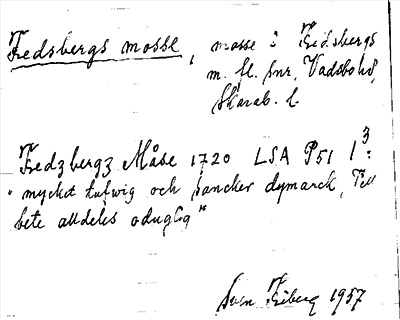 Fredsbergs mosse, mosse i Fredsbergs
m. fl. snr, Vadsbo hd,
Skarab. l.
Fredzbergz Måse 1720 LSA P51 1³:
"mycket tufwig och sancker dymarck, Till
bete alldeles oduglig"
Sven Friberg 1957